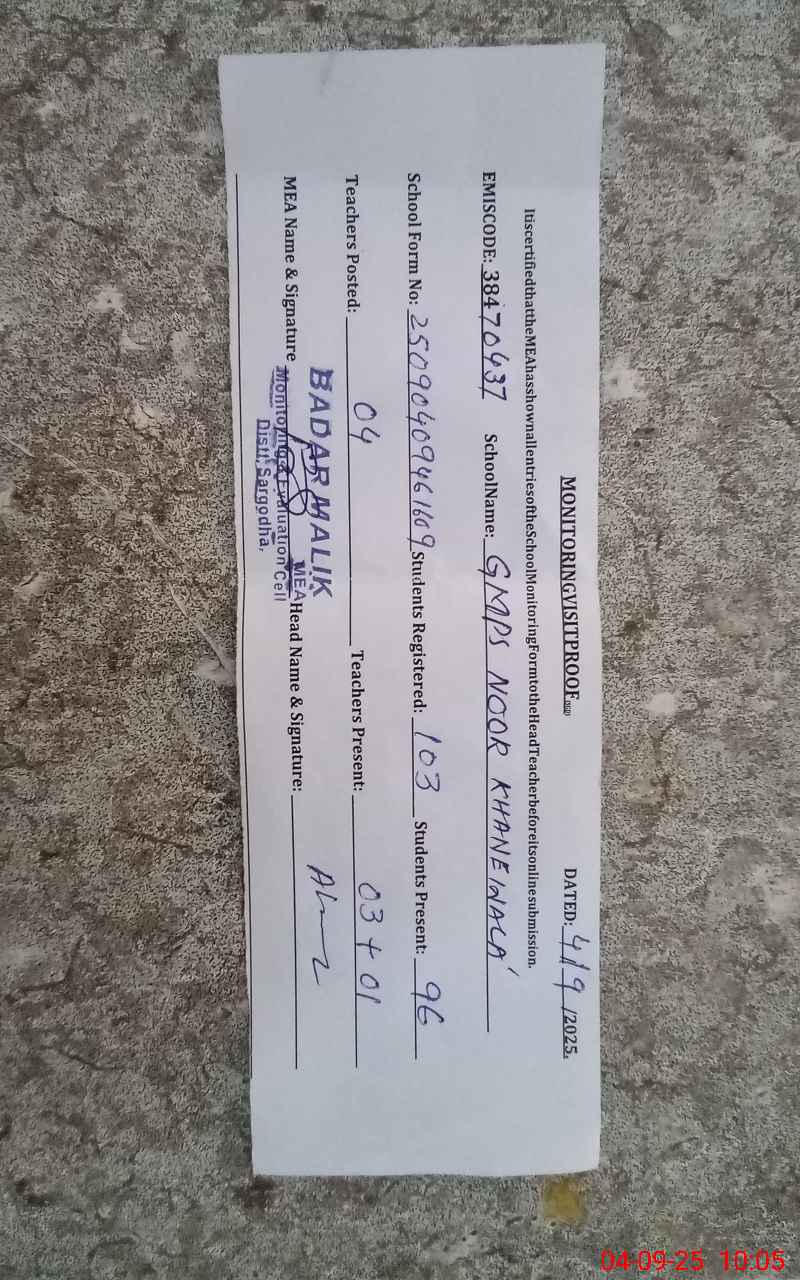 MONITORINGVISITPROOF DATED: 4/9 /2025.
ItiscertifiedthattheMEAhasshownallentriesoftheSchoolMonitoringFormtotheHeadTeacherbeforeitsonlinesubmission.
EMISCODE: 38470437 SchoolName: GMPS NOOR KHANEWALA
School Form No: 25090409461609 Students Registered: 103 Students Present: 96
Teachers Posted: 04 Teachers Present: 03 + 01
MEA Name & Signature BADAR MALIK Head Name & Signature:
MEA
Monitoring & Evaluation Cell
Distt. Sargodha.
04-09-25 10:05